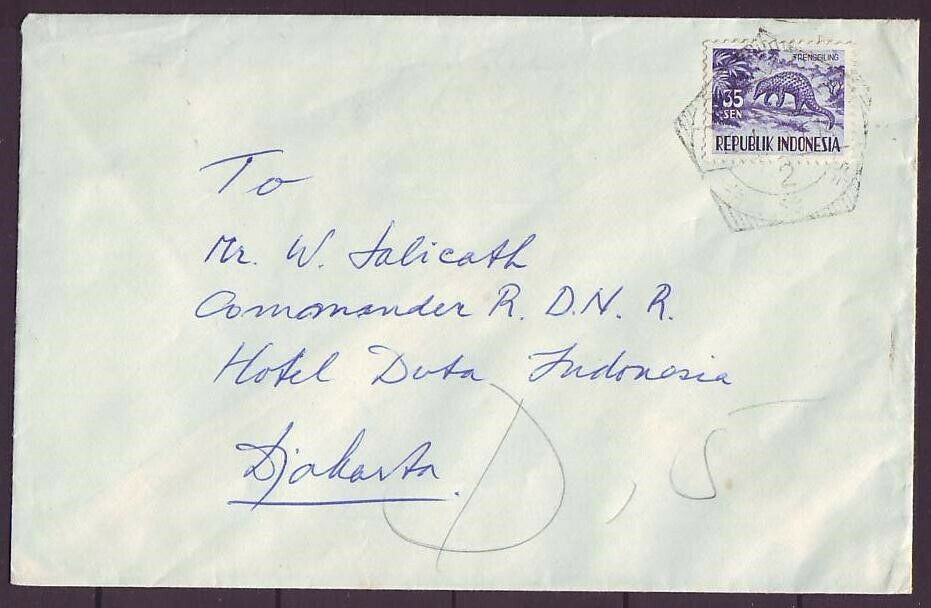 TRENGGILING
35
SEN
REPUBLIK INDONESIA
2
To
Mr. W. Salicath
Commander R. D. N. R.
Hotel Duta Indonesia
Djakarta.
D, 5